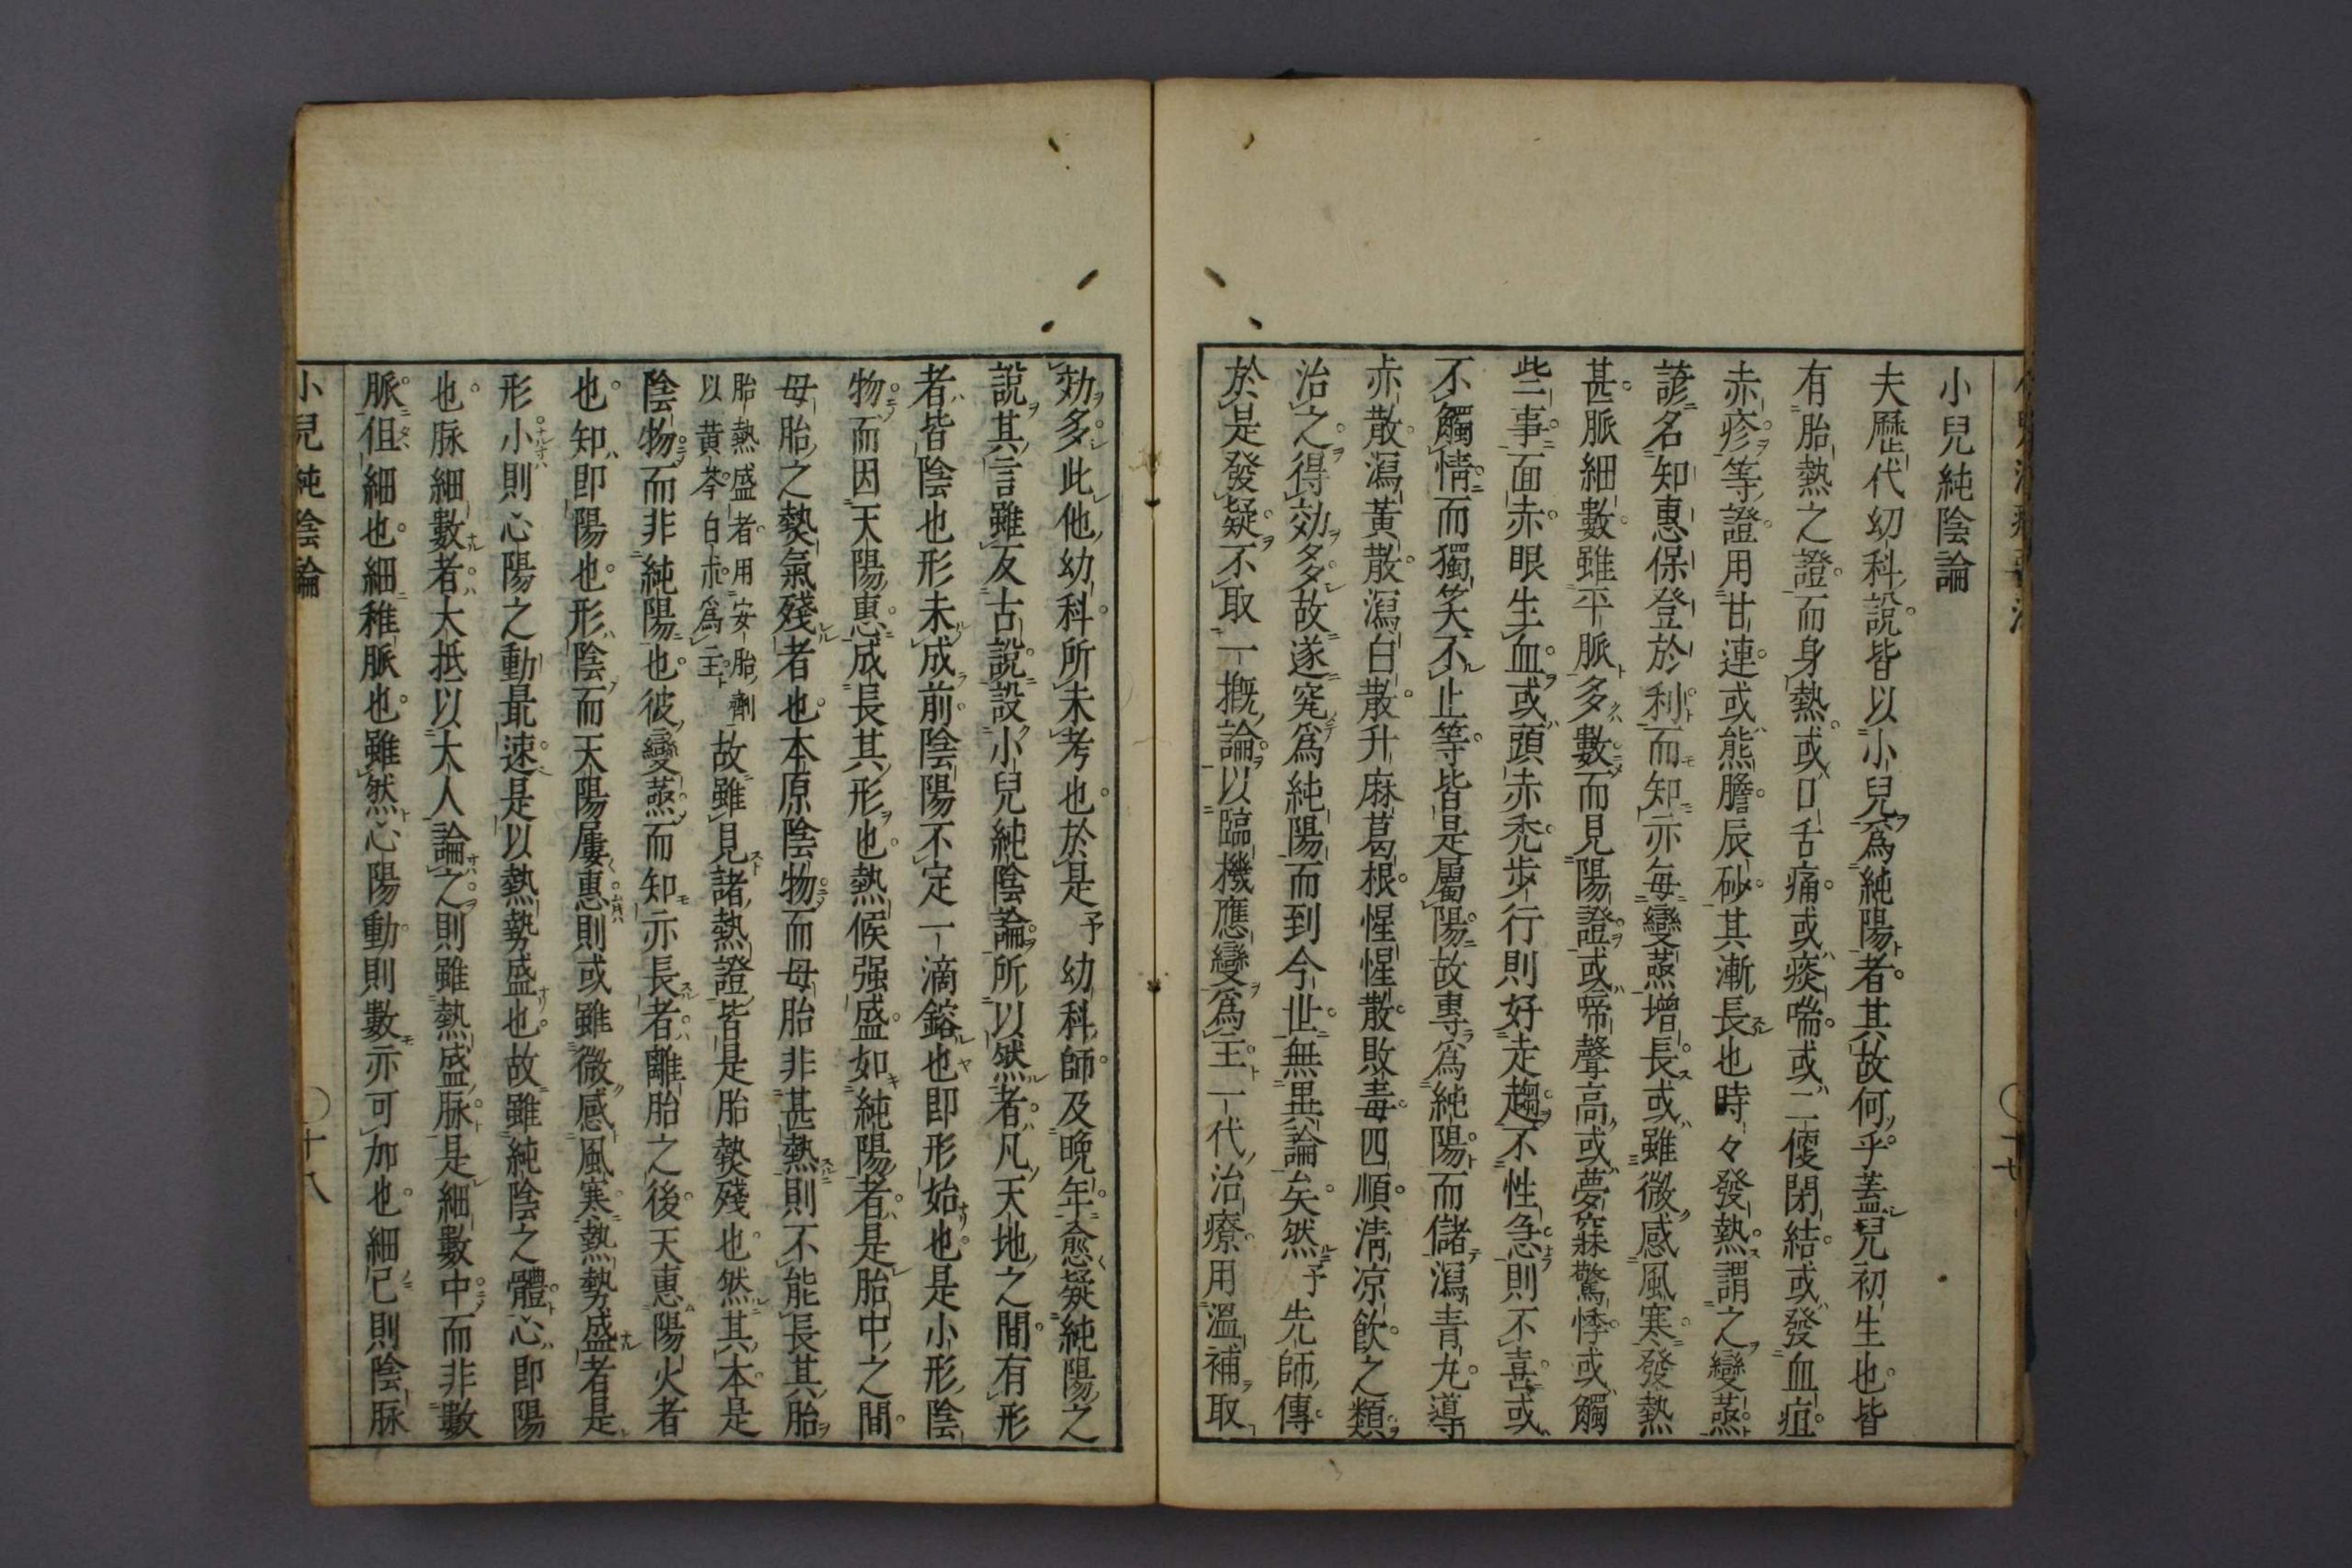 小兒純陰論
夫歷代幼科說皆以小兒爲純陽者其故何乎蓋兒初生也皆
有胎熱之證而身熱或口舌痛或痰喘或二便閉結或發血疽
赤疹等證用甘連或熊膽辰砂其漸長也時々發熱謂之變蒸
諺名知惠保登於利而知亦每變蒸增長或雖微感風寒發熱
甚脈細數雖平脈多數而見陽證或啼聲高或夢寐驚悸或觸
些事面赤眼生血或頭赤禿步行則好走趨不性急則不喜或
不觸情而獨笑不止等皆是屬陽故專爲純陽而儲瀉青丸導
赤散瀉黃散瀉白散升麻葛根惺惺散敗毒四順淸凉飮之類
治之得効多故遂究爲純陽而到今世無異論矣然予先師傳
於是發疑不取一概論以臨機應變爲主一代治療用溫補取
効多此他幼科所未考也於是予幼科師及晩年愈疑純陽之
說其言雖反古說設小兒純陰論所以然者凡天地之間有形
者皆陰也形未成前陰陽不定一滴鎔也即形始也是小形陰
物而因天陽惠成長其形也熱候强盛如純陽者是胎中之間
母胎之㷟氣殘者也本原陰物而母胎非甚熱則不能長其胎
胎熱盛者用安胎劑
以黃芩白朮爲主
故雖見諸熱證皆是胎㷟殘也然其本是
陰物而非純陽也彼變蒸而知亦長者離胎之後天惠陽火者
也知即陽也形陰而天陽屢惠則或雖微感風寒熱勢盛者是
形小則心陽之動最速是以熱勢盛也故雖純陰之體心即陽
也脉細數者大抵以大人論之則雖熱盛脉是細數中而非數
脈但細也細稚脈也雖然心陽動則數亦可加也細已則陰脉
小兒純陰論
十八